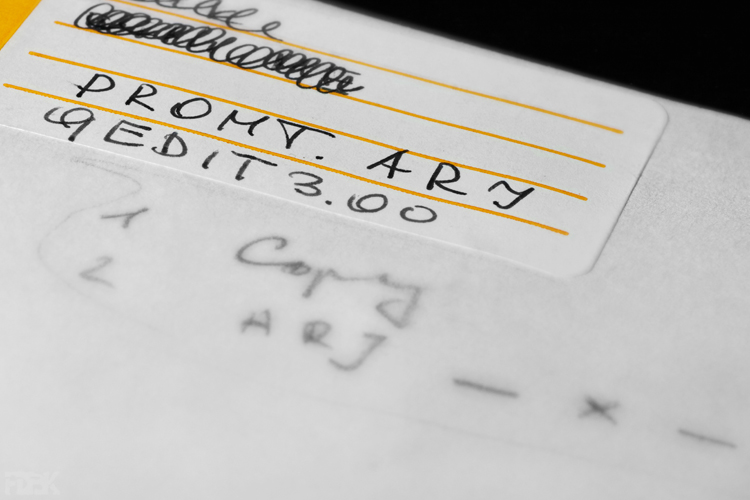 PROMT. ARJ
QEDIT 3.00
1 Copy
2 ARJ
— x —